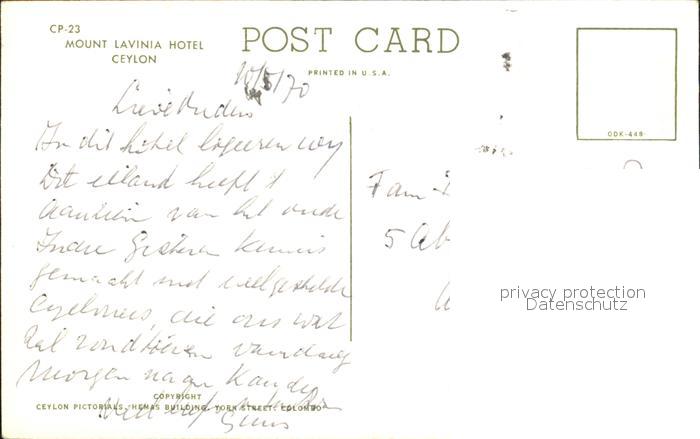 CP-23
MOUNT LAVINIA HOTEL
CEYLON
POST CARD
PRINTED IN U.S.A.
10/5/70
Lieve Ouders
In dit hotel logeeren wy
Dit eiland heeft 't
aanzien van het oude
Indie Gisteren kennis
gemaakt met welgestelde
Ceylonees, die ons wat
zal rondtoeren vandaag
Morgen naar Kandy
COPYRIGHT
CEYLON PICTORIALS, HEMAS BUILDING, YORK STREET, COLOMBO
ODK-448
Fam
5 Ab
privacy protection
Datenschutz